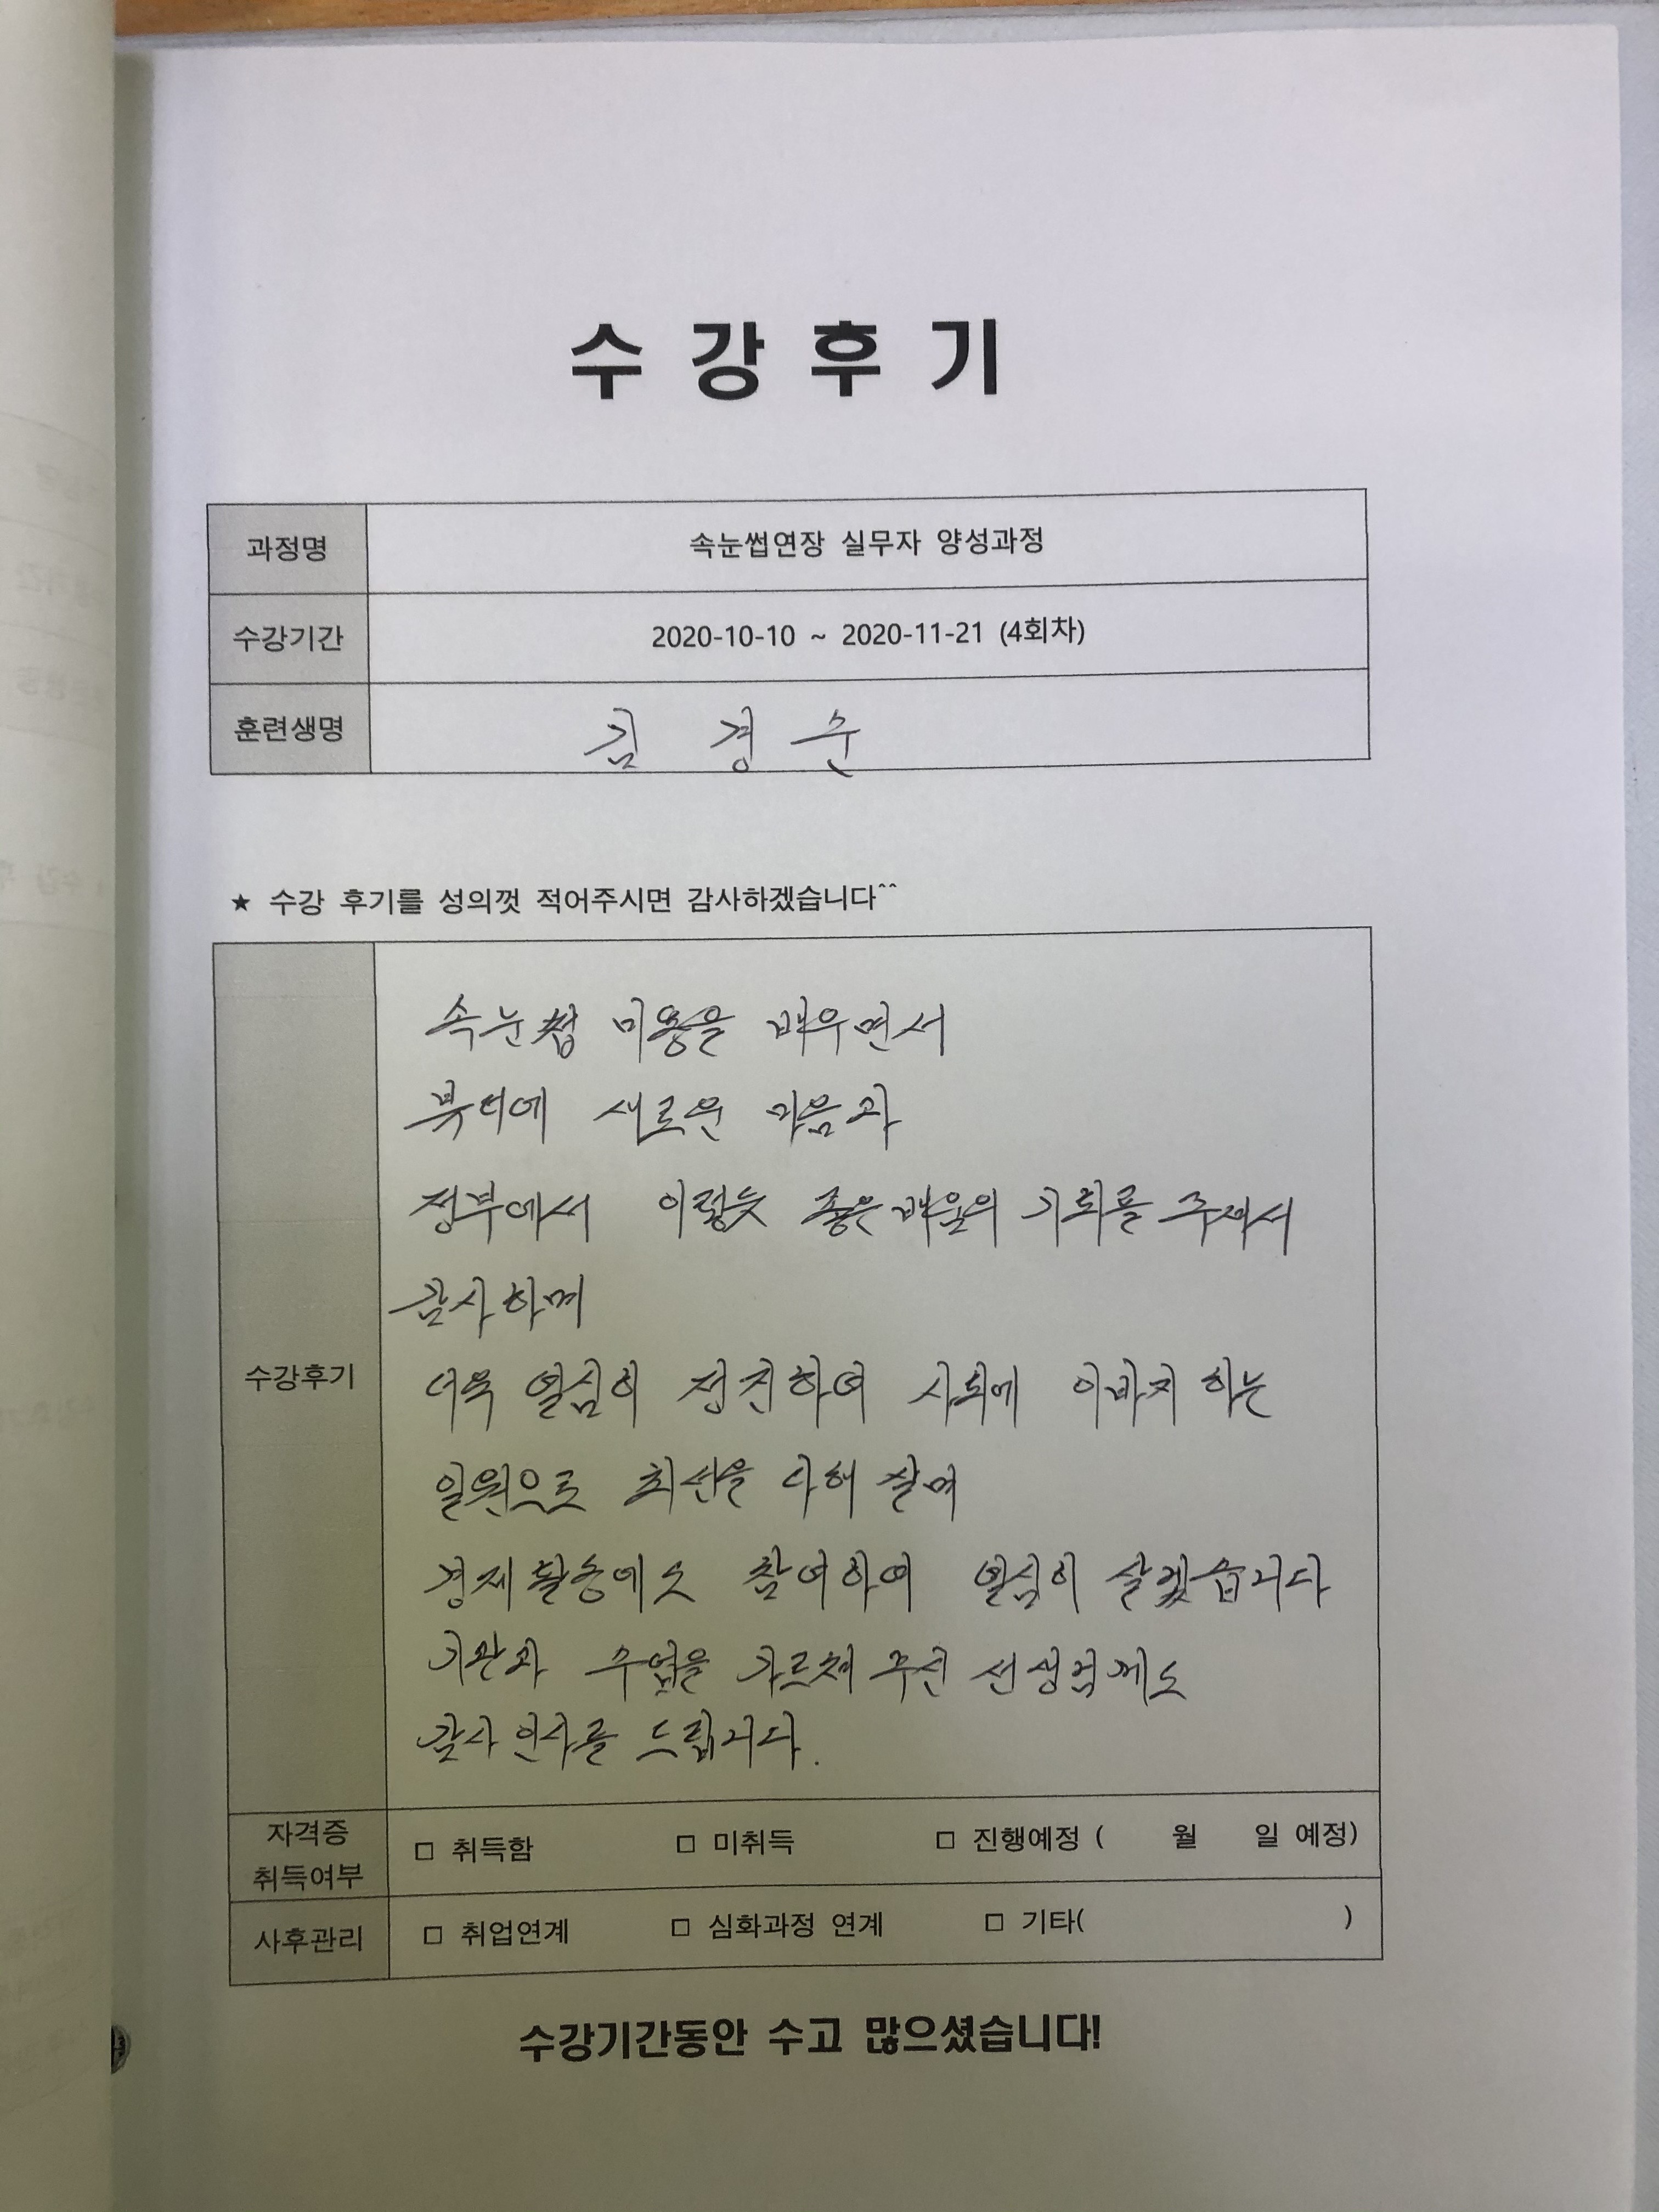 수강후기
과정명 속눈썹연장 실무자 양성과정
수강기간 2020-10-10 ~ 2020-11-21 (4회차)
훈련생명 김 경 순
★ 수강 후기를 성의껏 적어주시면 감사하겠습니다^^
속눈썹 미용을 배우면서
새로운 마음과
정부에서 이렇듯 좋은 배움의 기회를 주셔서
감사하며
더욱 열심히 정진하여 사회에 이바지 하는
일원으로 최선을 다해 살며
경제활동에도 참여하여 열심히 살겠습니다
수강후기
기관과 수업을 가르쳐 주신 선생님께도
감사 인사를 드립니다.
자격증 취득여부 □ 취득함 □ 미취득 □ 진행예정 ( 월 일 예정)
사후관리 □ 취업연계 □ 심화과정 연계 □ 기타( )
수강기간동안 수고 많으셨습니다!